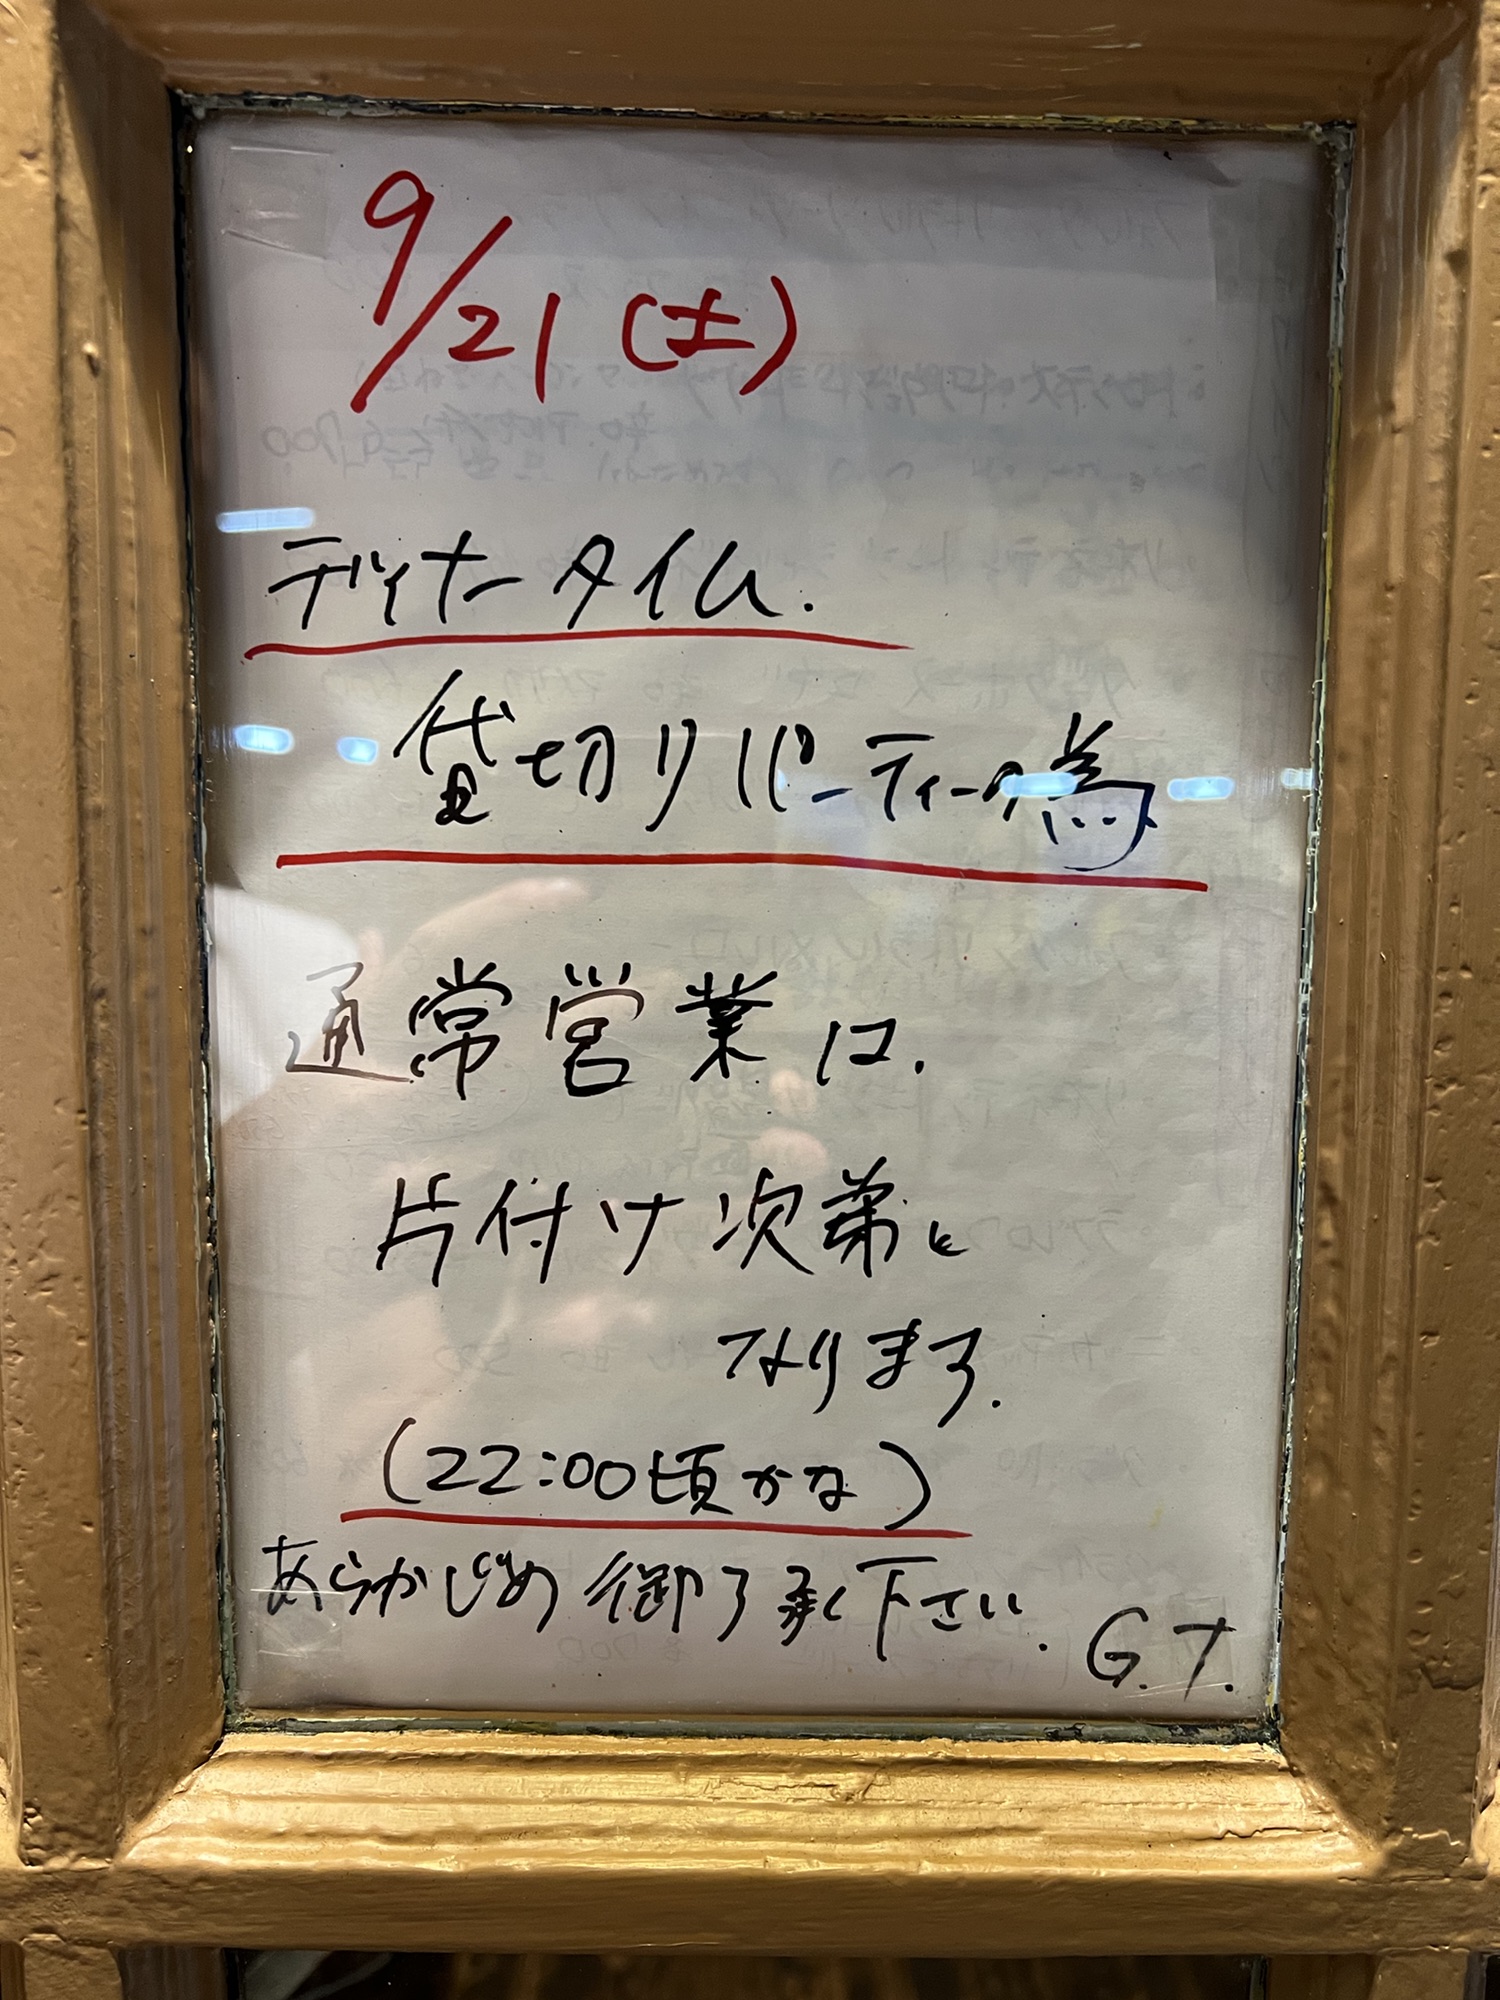 9/21(土)
ディナータイム.
貸切りパーティーの為
通常営業は.
片付け次第と
なります.
(22:00頃かな)
あらかじめ御了承下さい.
G.T.